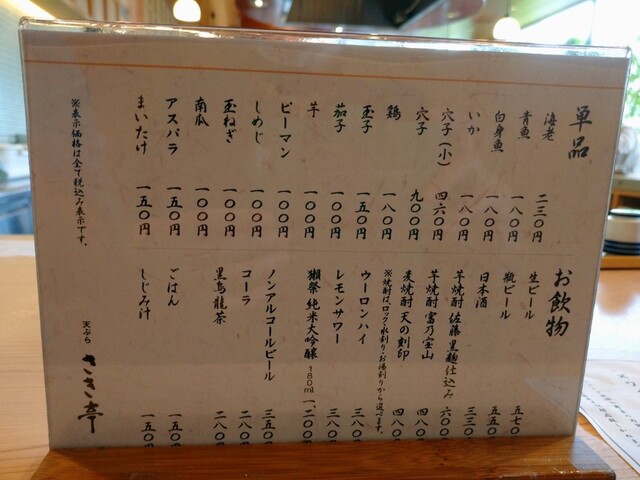 単品
海老 二三〇円
青魚 一八〇円
白身魚 一八〇円
いか 一八〇円
穴子(小) 四六〇円
穴子 九〇〇円
鶏 一八〇円
玉子 一五〇円
茄子 一〇〇円
芋 一〇〇円
ピーマン 一〇〇円
しめじ 一〇〇円
玉ねぎ 一〇〇円
南瓜 一〇〇円
アスパラ 一五〇円
まいたけ 一五〇円
※表示価格は全て税込み表示です。
お飲物
生ビール 五七〇
瓶ビール 五五〇
日本酒 三三〇
芋焼酎 佐藤 黒麹仕込み 六〇〇
芋焼酎 富乃宝山 四八〇
麦焼酎 天の刻印 四八〇
※焼酎は、ロック・水割り・お湯割りから選べます。
ウーロンハイ 三八〇
レモンサワー 三八〇
獺祭 純米大吟醸 180ml 一、二〇〇
ノンアルコールビール 三五〇
コーラ 二八〇
黒烏龍茶 二八〇
ごはん 一五〇
しじみ汁 一五〇
天ぷら
さき亭